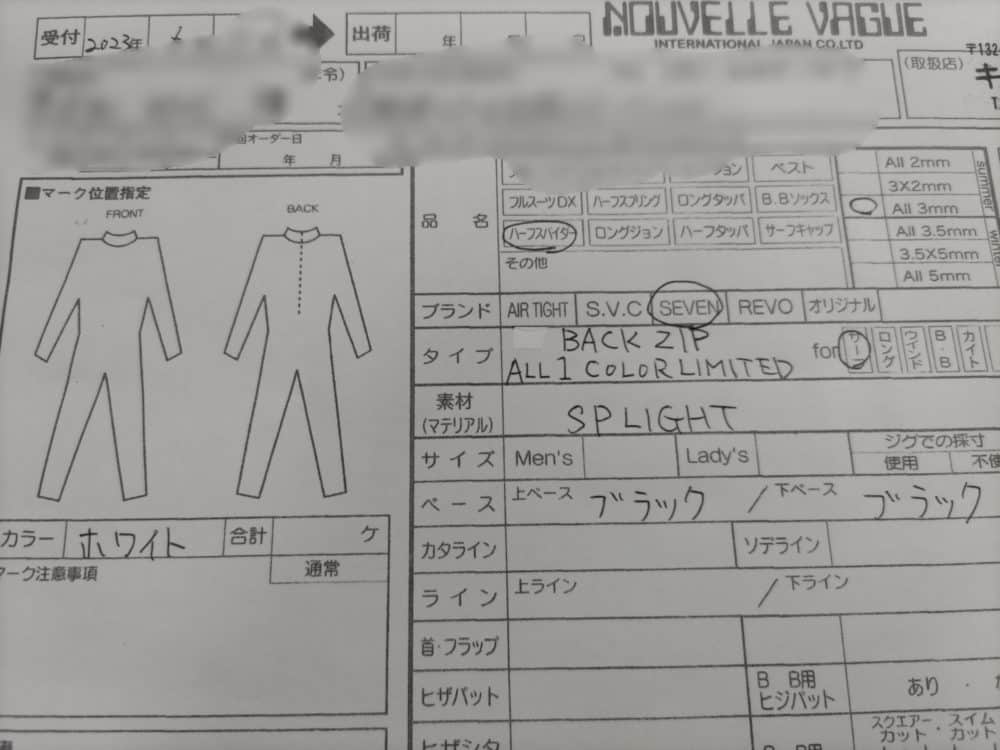 NOUVELLE VAGUE
INTERNATIONAL JAPAN CO.LTD
受付 2023年
出荷 年
〒132
(取扱店) キ
オーダー日
年 月
■マーク位置指定
FRONT BACK
カラー ホワイト 合計 ケ
マーク注意事項 通常
品名
ベスト
フルスーツDX ハーフスプリング ロングタッパ B.Bソックス
ハーフスパイダー ロングジョン ハーフタッパ サーフキャップ
その他
All 2mm
3X2mm
All 3mm
All 3.5mm
3.5X5mm
All 5mm
summer
winter
ブランド AIR TIGHT S.V.C SEVEN REVO オリジナル
タイプ BACK ZIP
ALL 1 COLOR LIMITED
for サーフ ロング ウインド B・B カイト
素材
(マテリアル) SP LIGHT
サイズ Men's Lady's ジグでの採寸
使用
ベース 上ベース ブラック / 下ベース ブラック
カタライン ソデライン
ライン 上ライン / 下ライン
首・フラップ
ヒザパット B B用
ヒジパット あり ・
スクエアー・スイム
カット・カット